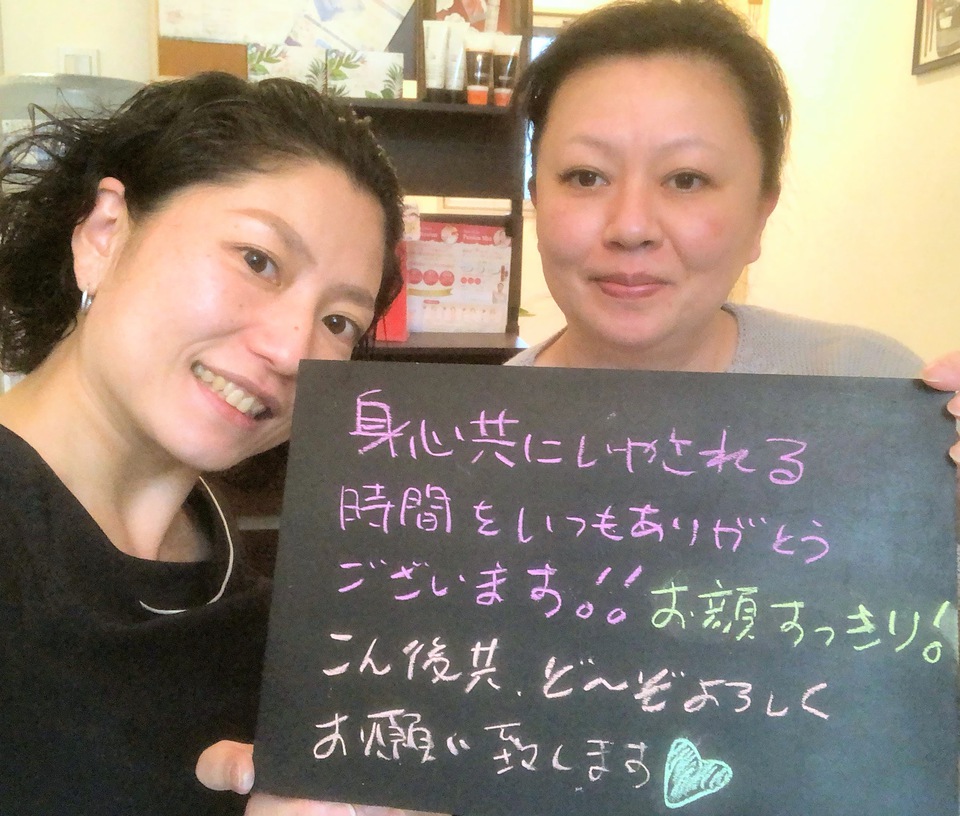 身心共にいやされる
時間をいつもありがとう
ございます!! お顔すっきり!
こん後共、ど〜ぞよろしく
お願い致します